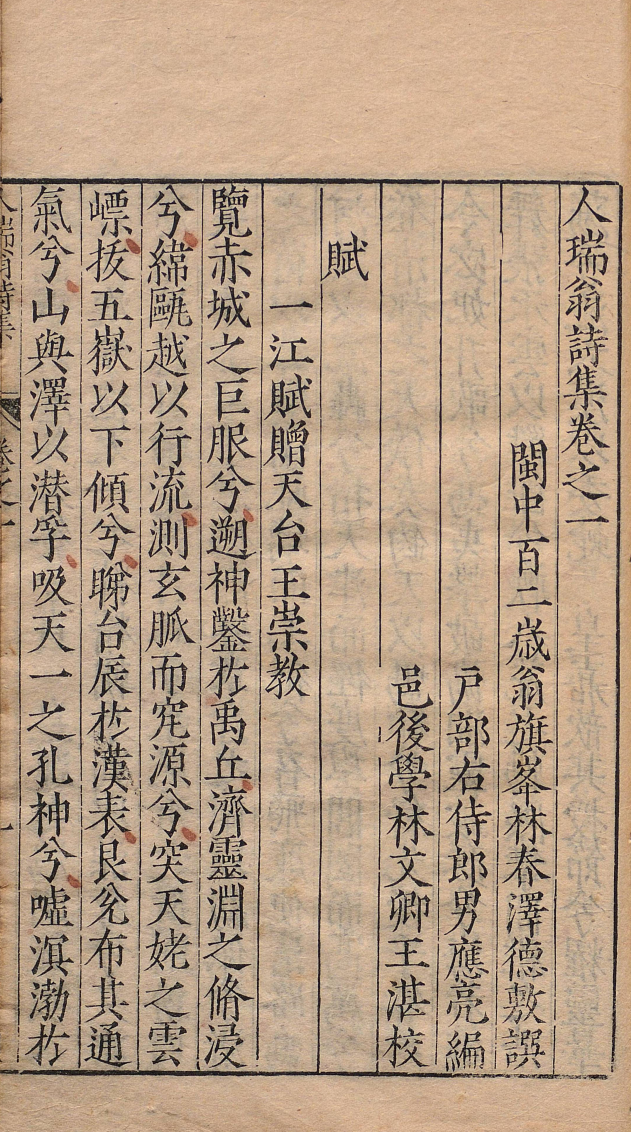 人瑞翁詩集卷之一
閩中百二歲翁旗峯林春澤德敷譔
戶部右侍郎男應亮編
邑後學林文卿王湛校
賦
一江賦贈天台王崇教
覽赤城之巨服兮遡神鑿於禹丘濟靈淵之脩浸
兮綿甌越以行流測玄脈而究源兮突天姥之雲
嶫拔五嶽以下傾兮睇台辰於漢表艮兊布其通
氣兮山與澤以潛孚吸天一之孔神兮噓溟渤於
人瑞翁詩集
卷之一
一